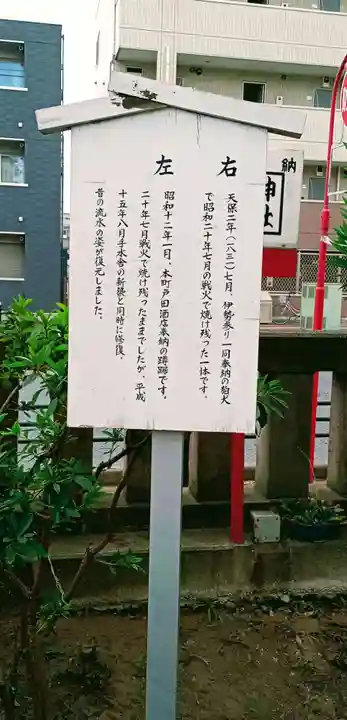 右
天保二年(一八三一)七月、伊勢参り一同奉納の狛犬
で昭和二十年七月の戦火で焼け残った一体です。
左
昭和十二年一月、本町戸田酒店奉納の蹲踞です。
二十年七月戦火で焼け残ったままでしたが、平成
十五年八月手水舎の新築と同時に修復。
昔の流水の姿が復元しました。
納
神社